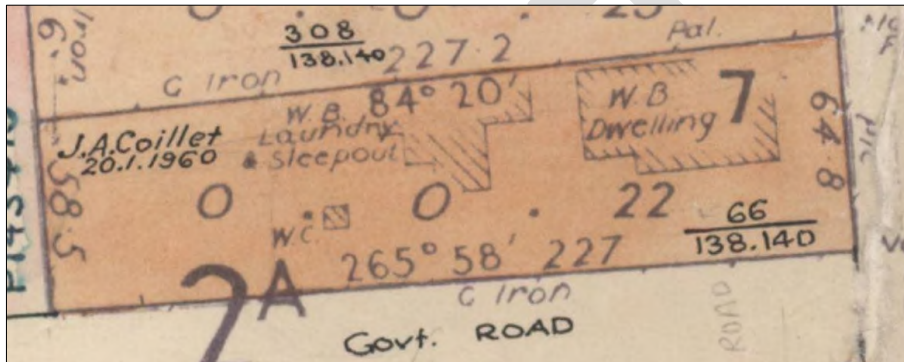 0 . 0 . 25
308
138.140
227.2
Pal.
G Iron
Iron
6.
84° 20'
W.B.
Laundry
& Sleepout
W.B
Dwelling
7
J.A.Coillet
20.1.1960
58.5
64.8
0 0 . 22
W.C.
66
138.140
265° 58' 227
2A
G Iron
Govt. ROAD
ROAD